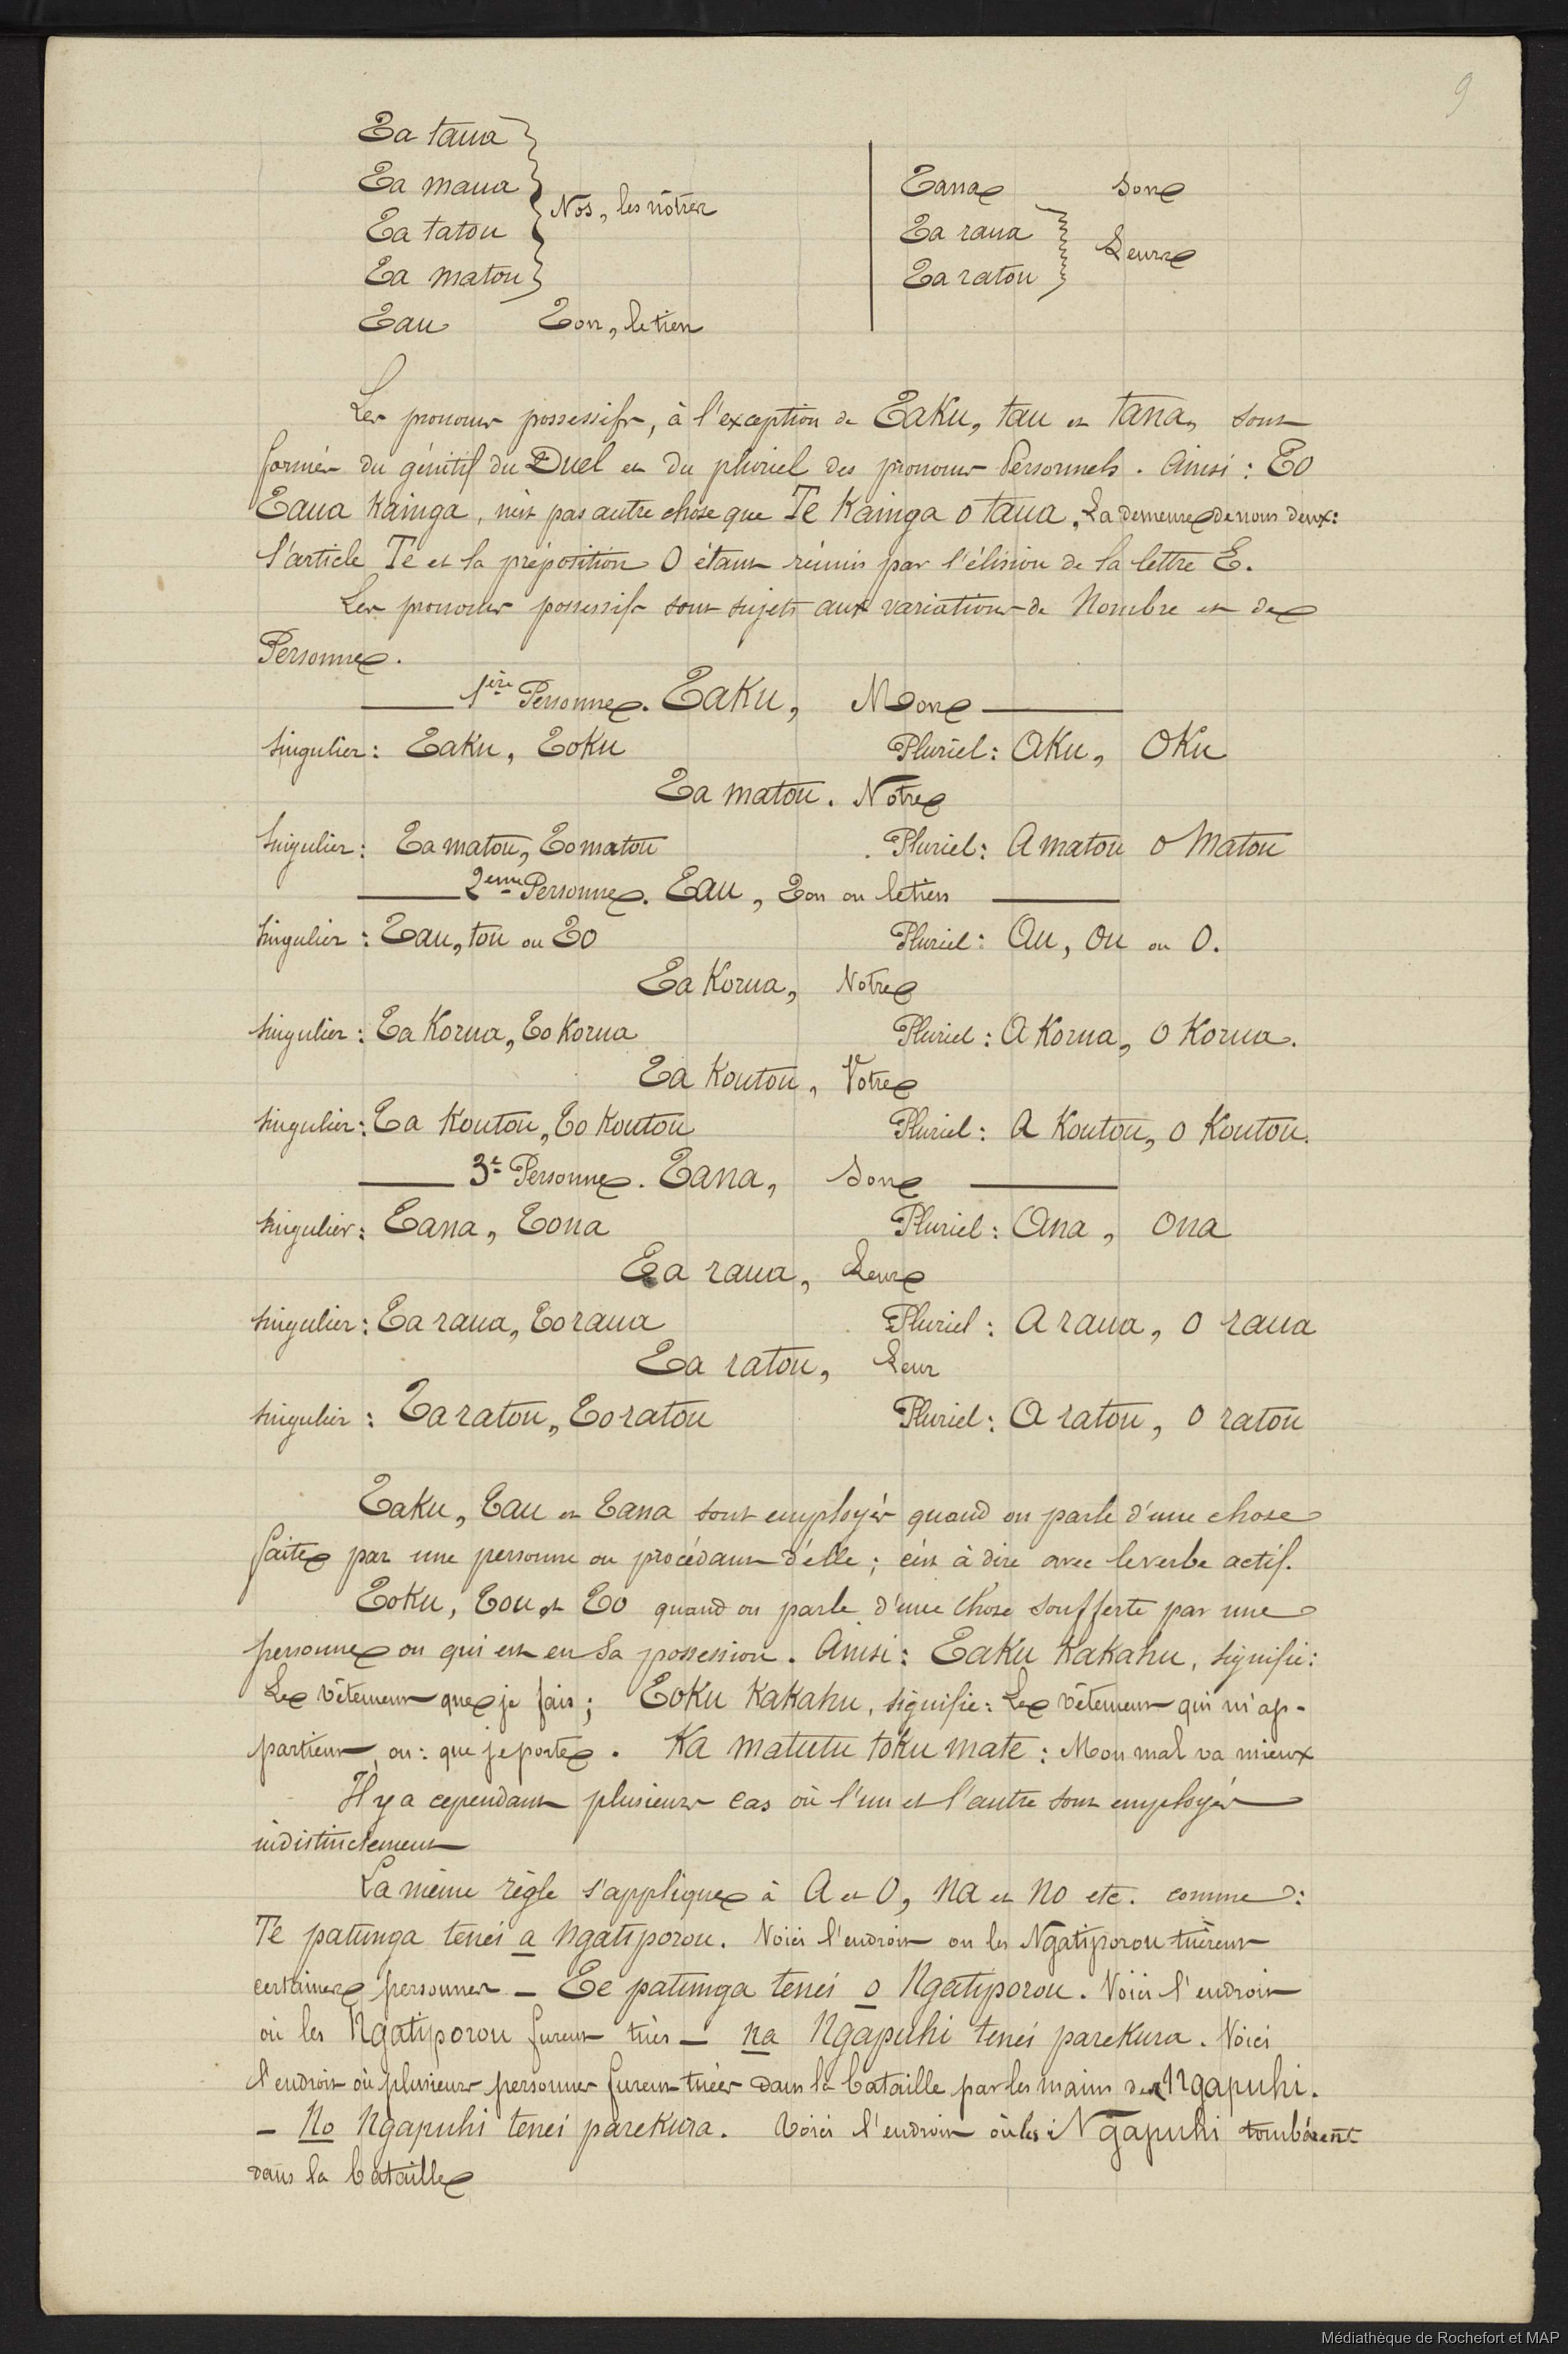 9
Ta taua
Ta maua
Ta tatou
Ta matou
Nos, les nôtres
Tau Ton, le tien
Tana Son
Ta raua
Ta ratou
Leur
Les pronoms possessifs, à l'exception de Taku, tau et tana, sont
formés du génitif du Duel et du pluriel des pronoms Personnels. Ainsi : To
Taua Kainga, n'est pas autre chose que Te Kainga o taua, La demeure de nous deux:
l'article Te et la préposition O étant réunis par l'élision de la lettre E.
Les pronoms possessifs sont sujets aux variations de Nombre et de
Personne.
1ère Personne. Taku, Mon
Singulier: Taku, Toku Pluriel: Aku, Oku
Ta matou. Notre
Singulier: Ta matou, To matou Pluriel: A matou o Matou
2eme Personne. Tau, Ton ou le tien
Singulier: Tau, tou ou To Pluriel: Au, Ou ou O.
Ta Korua, Notre
Singulier: Ta Korua, To Korua Pluriel: A Korua, O Korua.
Ta Koutou, Votre
Singulier: Ta Koutou, To Koutou Pluriel: A Koutou, O Koutou.
3e Personne. Tana, Son
Singulier: Tana, Tona Pluriel: Ana, Ona
Ta raua, Leur
Singulier: Ta raua, To raua Pluriel: A raua, O raua
Ta ratou, Leur
Singulier: Ta ratou, To ratou Pluriel: A ratou, O ratou
Taku, Tau et Tana sont employés quand on parle d'une chose
faite par une personne ou procédant d'elle; c'est à dire avec le verbe actif.
Toku, Tou et To quand on parle d'une chose soufferte par une
personne ou qui est en sa possession. Ainsi: Taku Kakahu, signifie:
Le vêtement que je fais; Toku Kakahu, signifie: Le vêtement qui m'ap-
partient, ou: que je porte. Ka matutu toku mate: Mon mal va mieux
Il y a cependant plusieurs cas où l'un et l'autre sont employés
indistinctement
La même règle s'applique à A et O, Na et No etc. comme:
Te patunga tenei a Ngatiporou. Voici l'endroit ou les Ngatiporou tuèrent
certaines personnes - Te patunga tenei o Ngatiporou. Voici l'endroit
où les Ngatiporou furent tués - na Ngapuhi tenei parekura. Voici
l'endroit où plusieurs personnes furent tuées dans la bataille par les mains des Ngapuhi.
- No Ngapuhi tenei parekura. Voici l'endroit où les Ngapuhi tombèrent
dans la bataille
Médiathèque de Rochefort et MAP